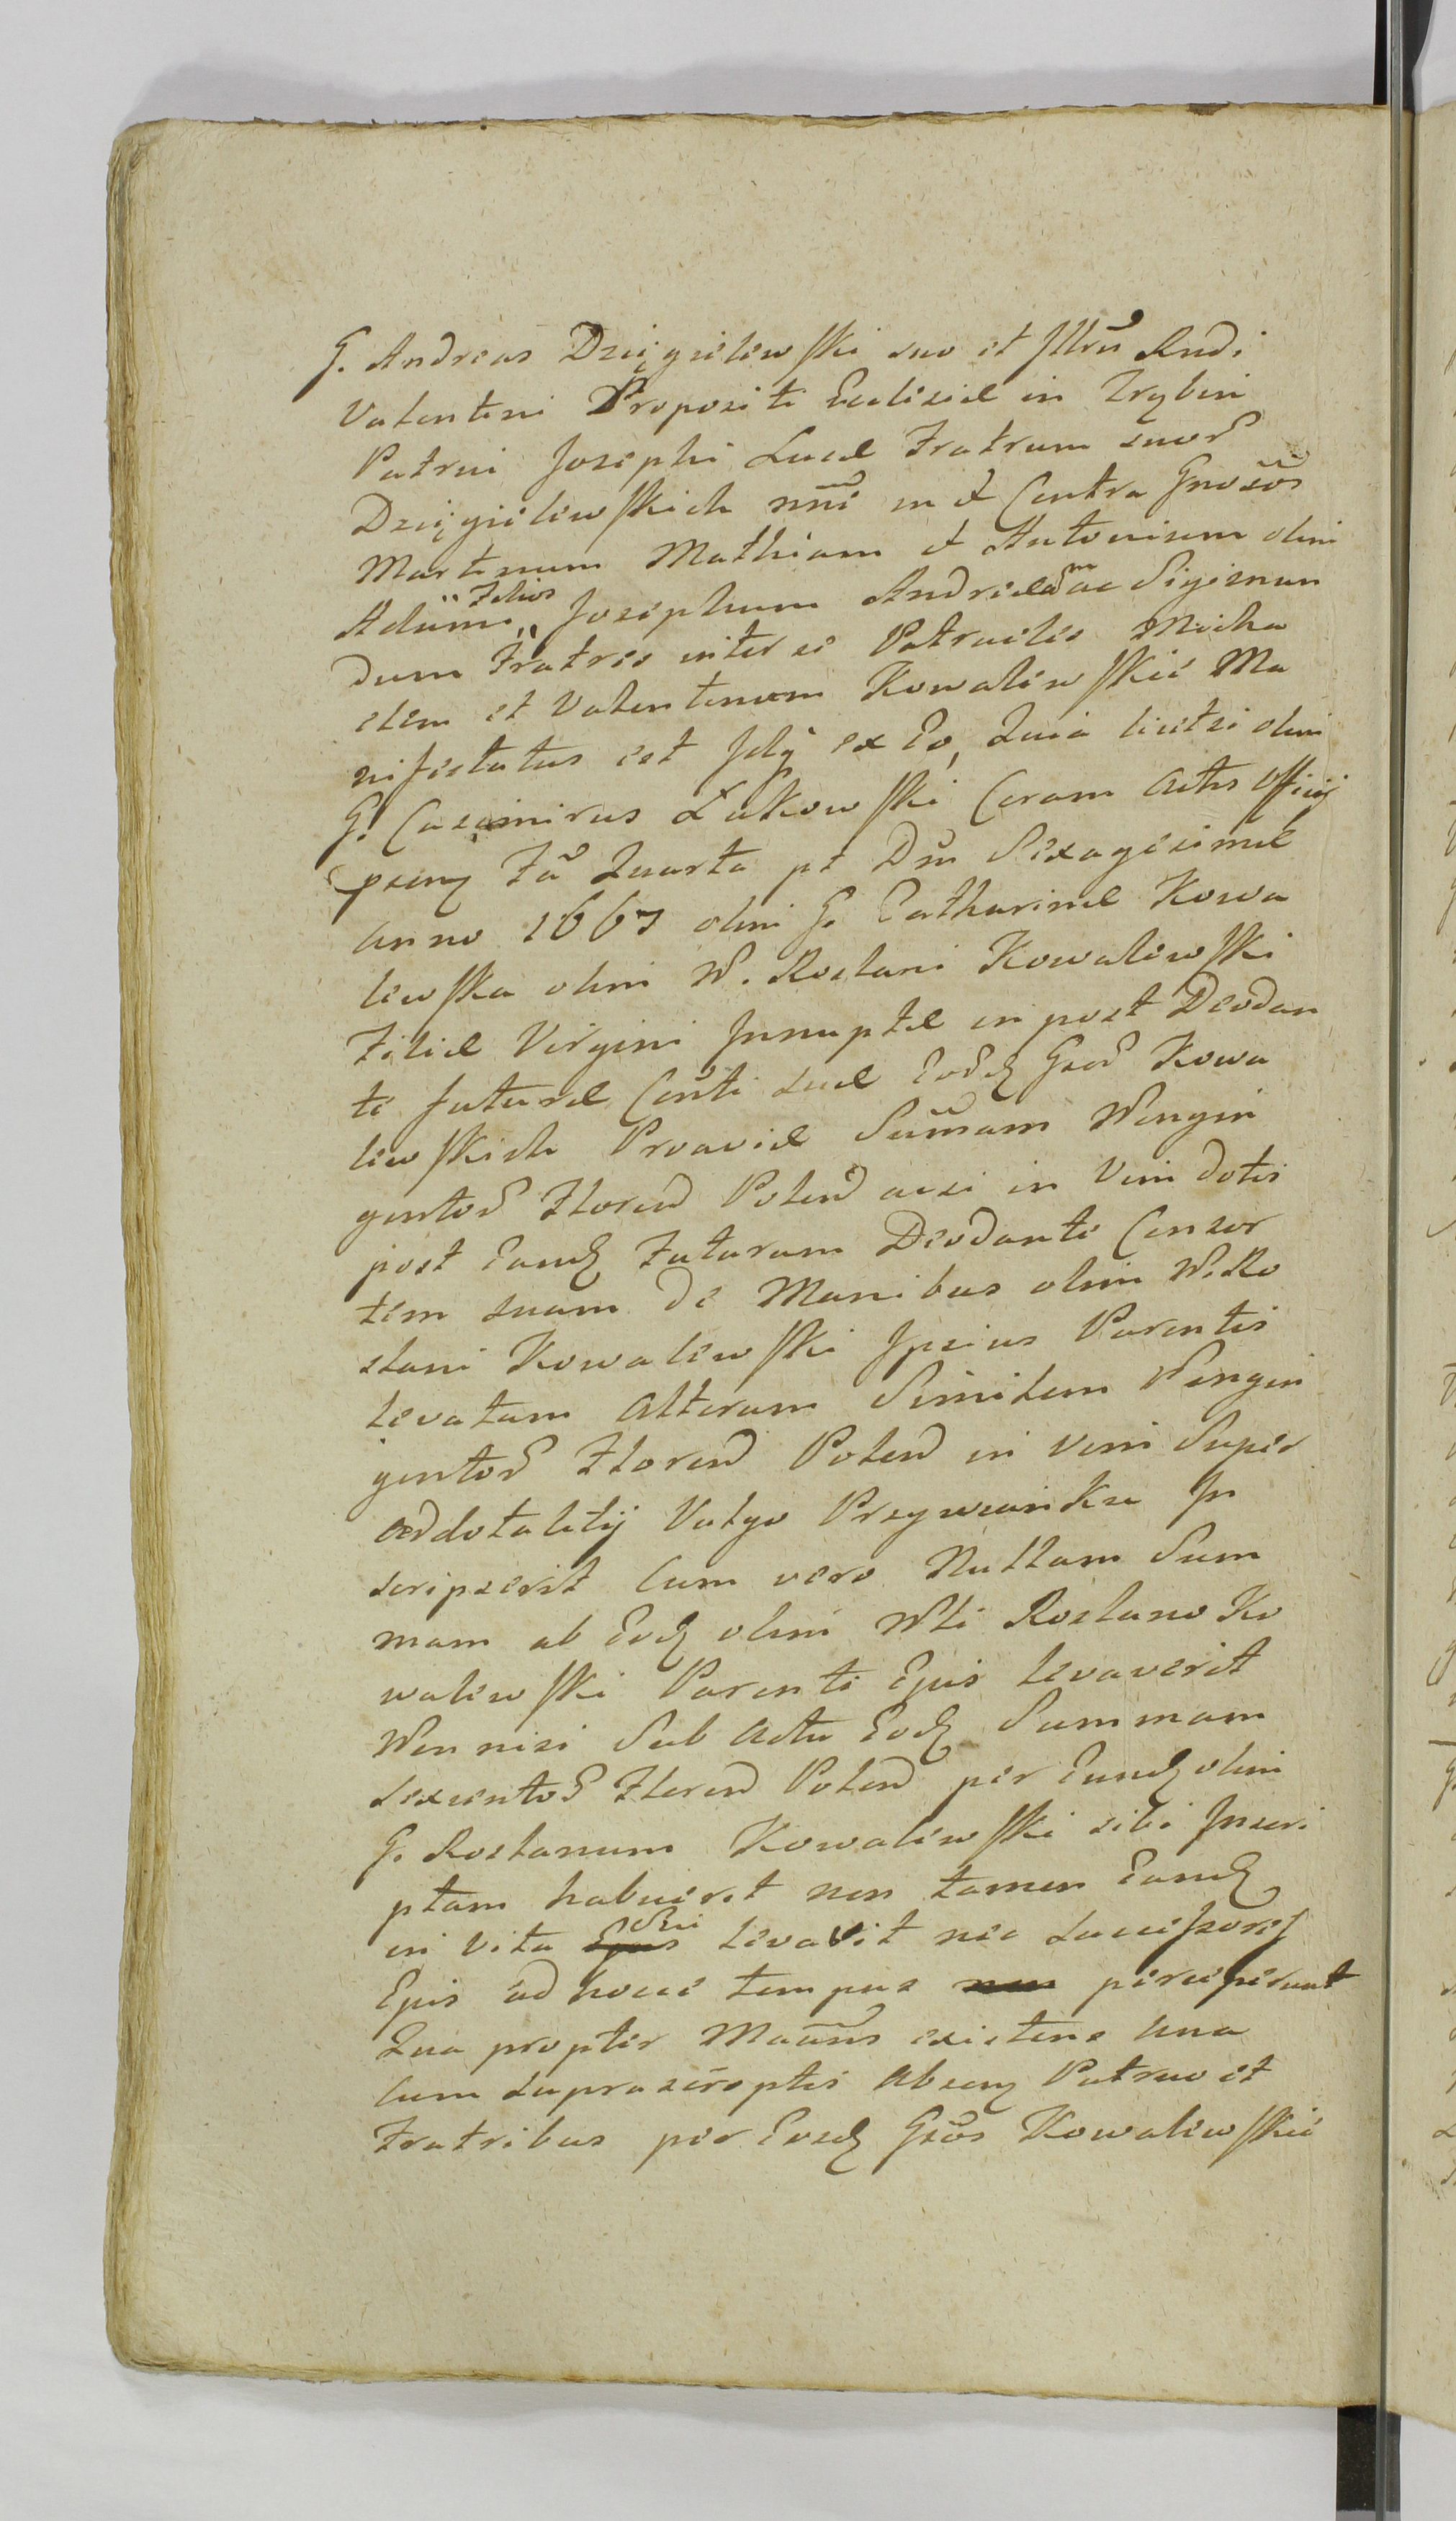 G. Andreas Dzięgielewski suo et Illru Rndi
Valentini Propositi Ecclesiae in Trzbin
Patrui Josephi Lucae Fratrum suor
Dzięgielewskich nnē in et Contra Gnosos
Martinum Mathiam et Antonium olim
Adami „ Filios „ Josephum Andream ac Sigismun
dum Fratres inter se Patrueles Micha
elem et Valentinum Kowalewskie Ma
nifestatus est Idq ex Eo, Quia licet si olim
G. Casimirus Lukowski Coram Actis Officij
psenq Fa Quarta pt Dm Sexagesimae
Anno 1667 olim G. Catharinae Kowa
lewska olim W. Roslani Kowalewski
Filiae Virgini Innuptae in post Deodan
te futurae Conti suae Eodq Gsor Kowa
lewskich Proaviae Summam Wingin
gentor Floren Polen acsi in Vim dotis
post Eandq Futuram Deodante Consor
tem suam de Manibus olim W. Ro
slani Kowalewski Ipsius Parentis
levatam Alteram Similem Vingin
gentor Floren Polen in vim Super
addotalitij Vulgo Przywianku In
scripserit Cum vero Nullam Sum
mam ab Eodq olim Wli Roslano Ko
walewski Parente Ejus levaverit
Wennisi Sub Actu Eodq Summam
sexcentor Floren Polen per Eundq olim
G. Roslanum Kowalewski sibi Inscri
ptam habuerit non tamen Eandq
in vita Sui levavit nec Successores
Ejus ad hocce tempus perceperunt
Qua propter Mauns existens una
cum suprascriptis Absenq Patruo et
Fratribus per Eosdq Gsos Kowalewskie